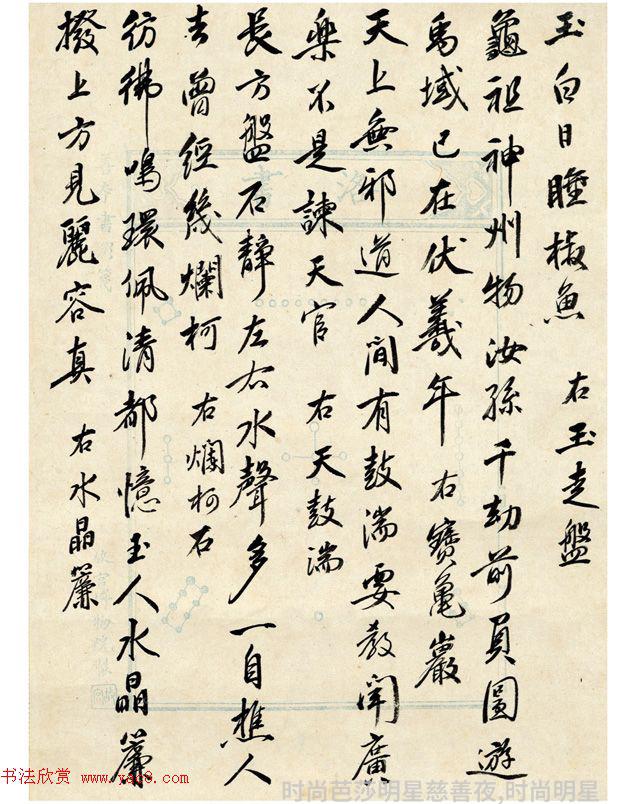 玉白日睡椒魚 右玉走盤
龜祖神州物汝孫千劫前負圖遊
馬域已在伏羲年 右寶龜巖
天上無邪道人間有鼓湍要教聞廣
樂不是諫天官 右天鼓湍
長方盤石靜左右水聲多一自樵人
去曾經幾爛柯 右爛柯石
彷彿鳴環佩清都憶玉人水晶簾
撥上方見麗容真 右水晶簾
洛書
書法欣赏 www.yac8.com
时尚芭莎明星慈善夜,时尚明星